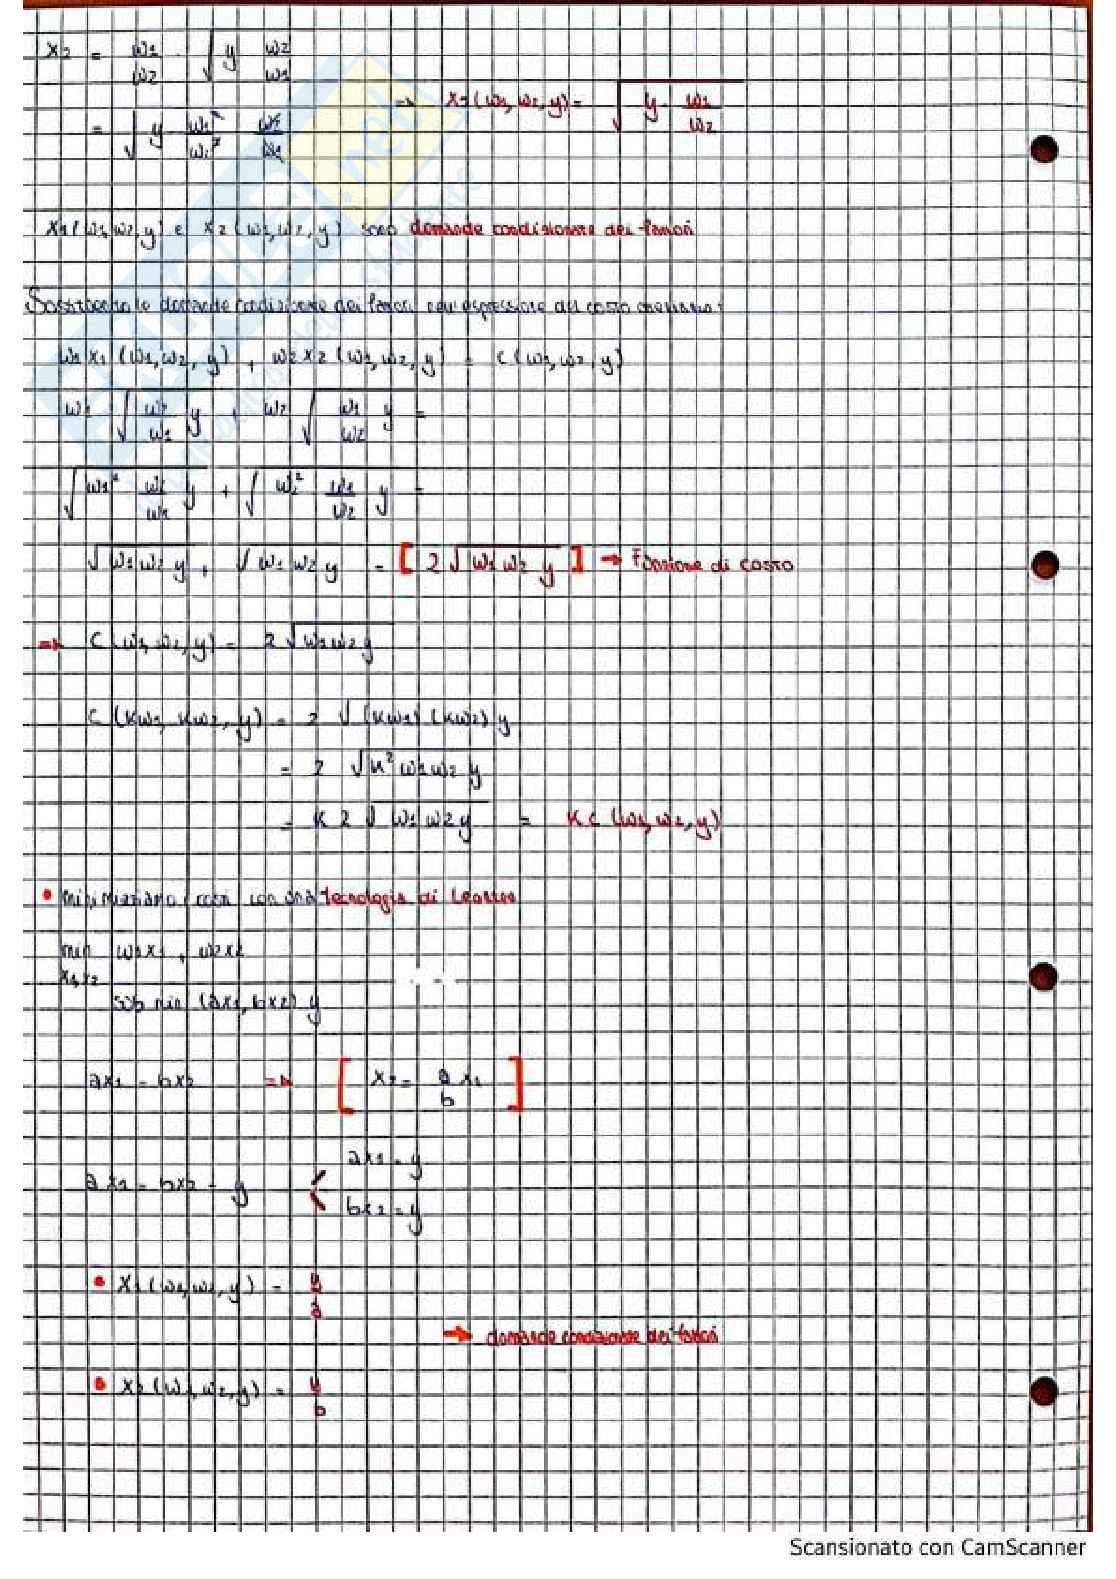 x2 = w1/w2 · √(y w2/w1)
= √(y w1²/w2² w2/w1) => x2 (w1, w2, y) = √(y · w1/w2)
x1 (w1, w2, y) e x2 (w1, w2, y) sono domande condizionate dei fattori
Sostituendo le domande condizionate dei fattori nell'espressione del costo
w1 x1 (w1, w2, y) + w2 x2 (w1, w2, y) = c (w1, w2, y)
w1 √(w2/w1 y) + w2 √(w1/w2 y) =
√(w1² w2/w1 y) + √(w2² w1/w2 y) =
√(w1 w2 y) + √(w1 w2 y) = [ 2 √(w1 w2 y) ] → Funzione di costo
=> c (w1, w2, y) = 2 √(w1 w2 y)
c (kw1, kw2, y) = 2 √((kw1) (kw2) y)
= 2 √(k² w1 w2 y)
= k 2 √(w1 w2 y) = k c (w1, w2, y)
• minimizziamo i costi con una tecnologia di Leontief
min w1x1 + w2x2
x1, x2
sub min (ax1, bx2) y
ax1 = bx2 => [ x2 = a/b x1 ]
ax1 = y
ax1 = bx2 = y <
bx2 = y
• x1 (w1, w2, y) = y/a
→ domande condizionate dei fattori
• x2 (w1, w2, y) = y/b
Scansionato con CamScanner